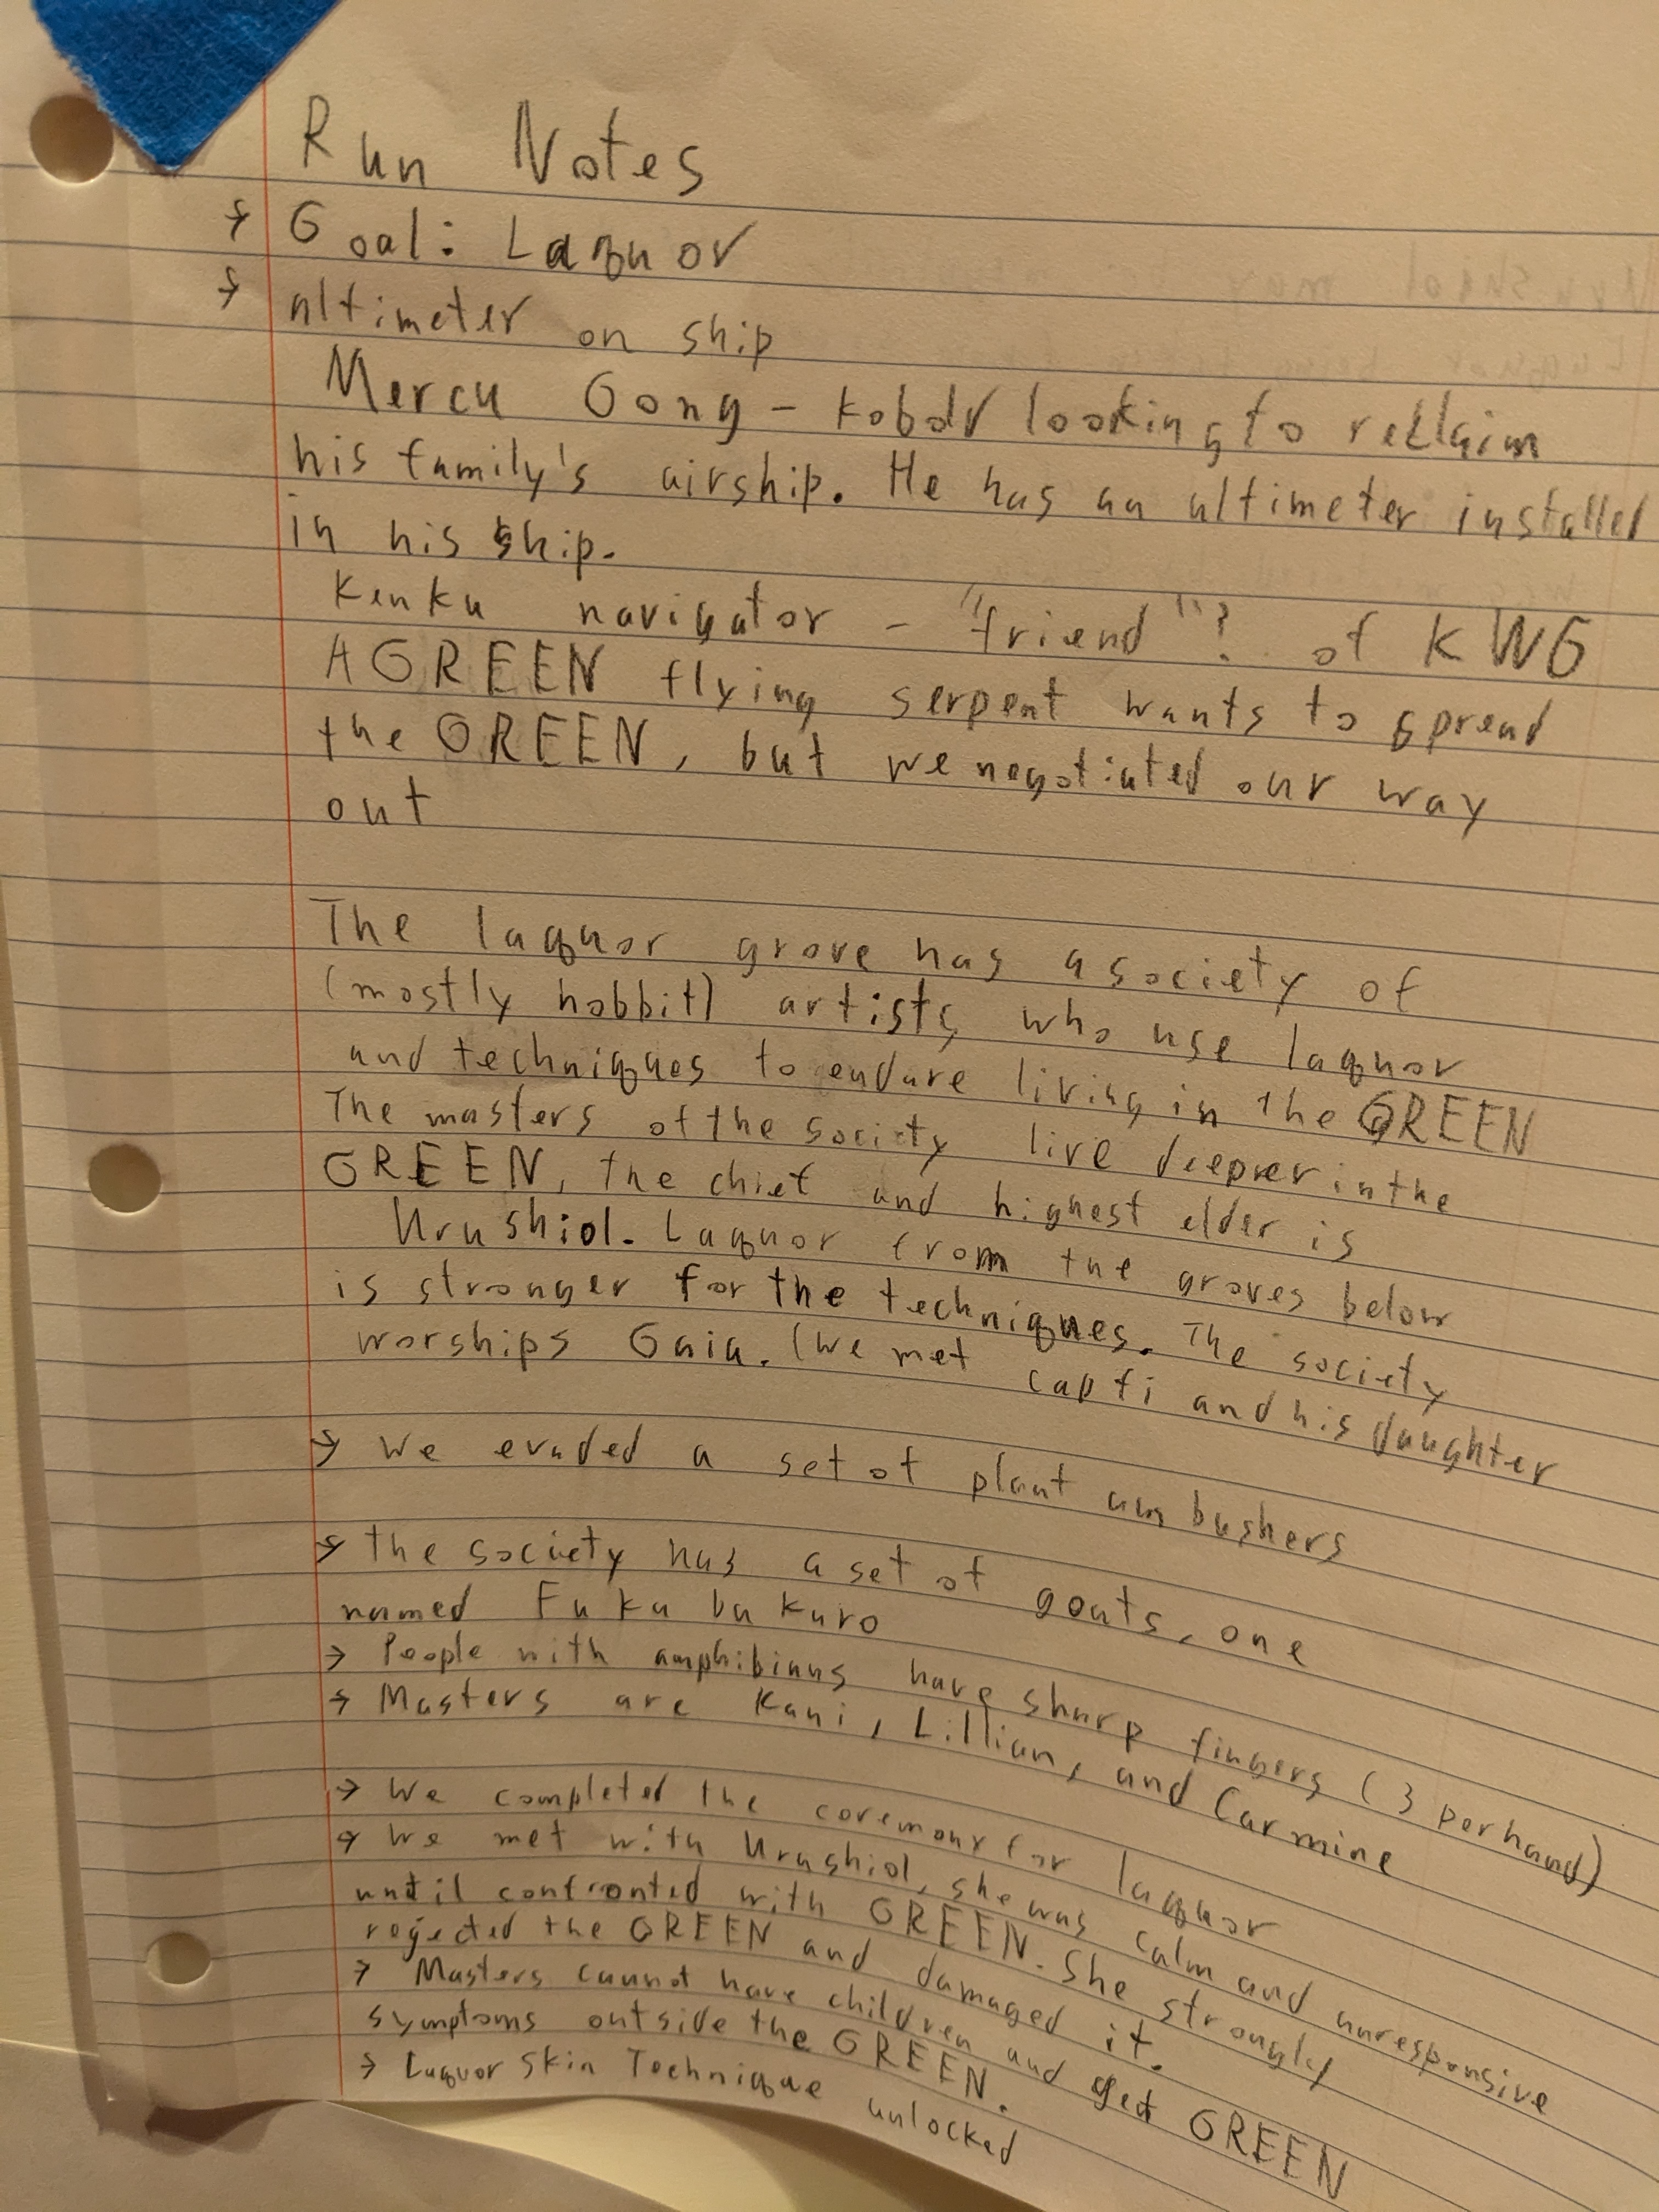 Run Notes
→ Goal: Laquor
→ altimeter on ship
Mercu Gong - Kobold looking to reclaim
his family's airship. He has an altimeter installed
in his ship.
Kenku navigator - "friend"? of KWG
A GREEN flying serpent wants to spread
the GREEN, but we negotiated our way
out
The laquor grove has a society of
(mostly hobbit) artists who use laquor
and techniques to endure living in the GREEN
The masters of the society live deeper in the
GREEN, the chief and highest elder is
Urushiol. Laquor from the groves below
is stronger for the techniques. The society
worships Gaia. (We met Capti and his daughter
→ We evaded a set of plant ambushers
→ The society has a set of goats, one
named Fukubukuro
→ People with amphibians have sharp fingers (3 per hand)
→ Masters are Kani, Lillian, and Carmine
→ We completed the ceremony for laquor
→ We met with Urushiol, she was calm and unresponsive
until confronted with GREEN. She strongly
rejected the GREEN and damaged it.
→ Masters cannot have children and get GREEN
symptoms outside the GREEN.
→ Laquor Skin Technique unlocked